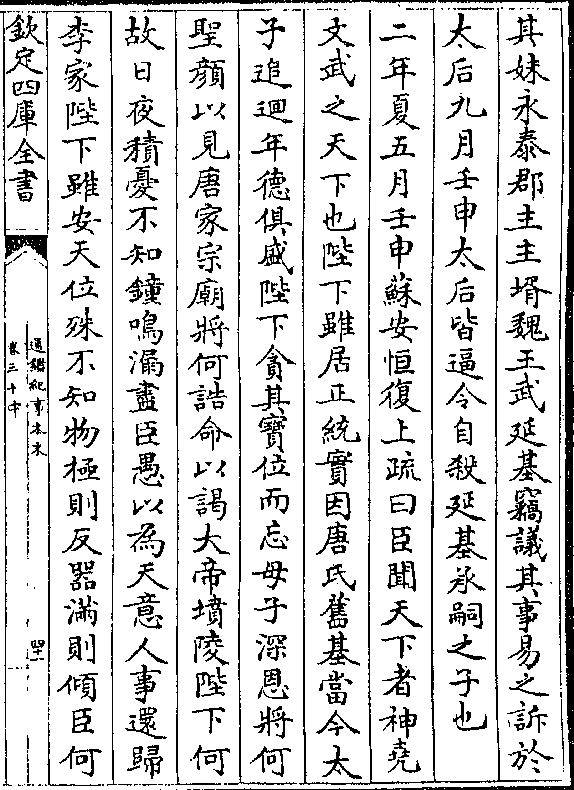 其妹永泰郡主主壻魏王武延基竊議其事易之訴於
太后九月壬申太后皆逼令自殺延基承嗣之子也
二年夏五月壬申蘇安恒復上疏曰臣聞天下者神堯
文武之天下也陛下雖居正統實因唐氏舊基當今太
子追迴年德俱盛陛下貪其寳位而忘母子深恩將何
聖顔以見唐家宗廟將何誥命以謁大帝墳陵陛下何
故日夜積憂不知鐘鳴漏盡臣愚以為天意人事還歸
李家陛下雖安天位殊不知物極則反器滿則傾臣何
欽定四庫全書
通鑑紀事本末
卷三十中